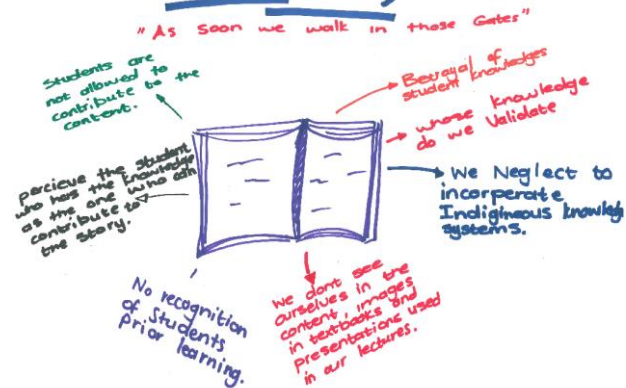 "As soon we walk in those Gates"
Students are
not allowed to
contribute to the
content.
Betrayal of
student knowledges
whose knowledge
do we Validate
percieve the student
who has the knowledge
as the one who can
contribute to
the story.
We Neglect to
incorperate
Indigineous knowledge
systems.
No recognition
of Students
Prior learning.
We dont see
ourselves in the
content, images
in textbooks and
presentations used
in our lectures.